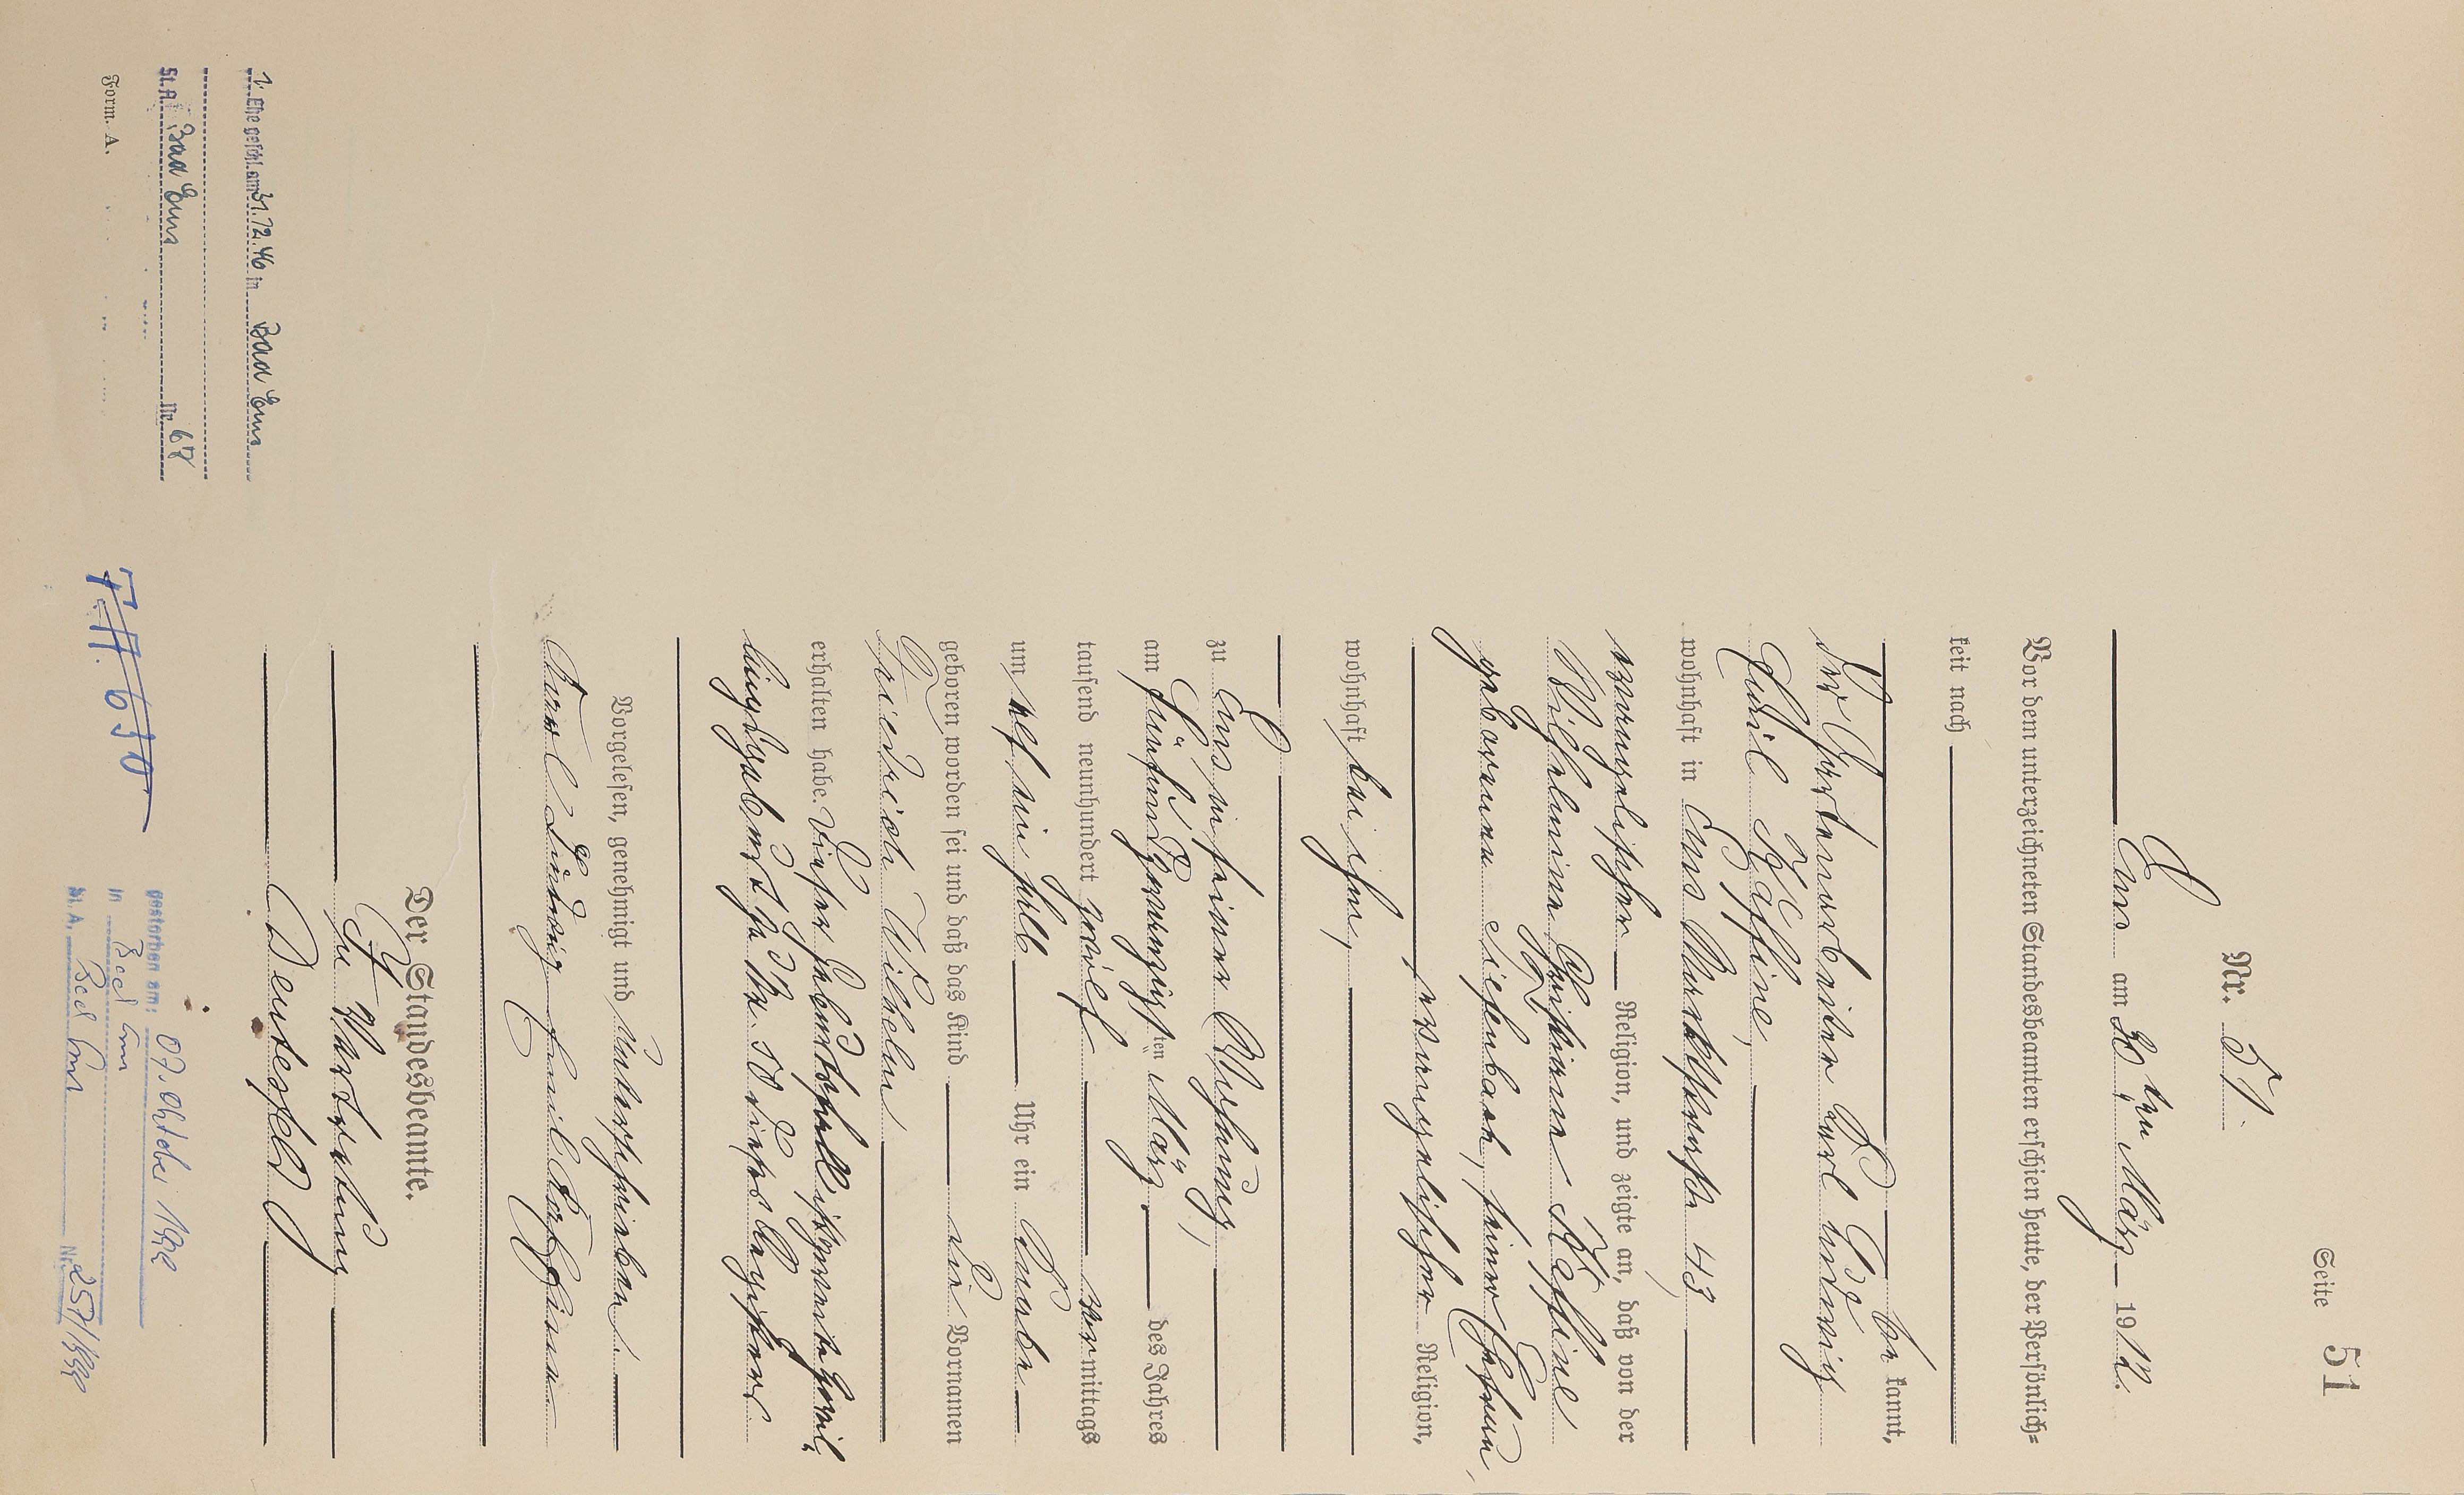 Seite 51
Nr. 51.
Ems am 30ten März 1912.
Vor dem unterzeichneten Standesbeamten erschien heute, der Persönlich=
keit nach
be kannt,
der Gartenarbeiter Karl Ludwig
Emil Kaffine,
wohnhaft in Ems Marktstraße 43
evangelischer Religion, und zeigte an, daß von der
Wilhelmine Christiane Kaffine
geborenen Siefenbach, seiner Ehefrau,
evangelischer Religion,
wohnhaft bei ihm,
zu Ems in seiner Wohnung,
am fünfundzwanzigsten März des Jahres
tausend neunhundert zwölf vormittags
um acht ein halb Uhr ein Knabe
geboren worden sei und daß das Kind die Vornamen
Friedrich Wilhelm
erhalten habe. Dieser Geburtsfall ist zweite Zwil=
lingsgeburt zu Nr. 50 dieses Registers
Vorgelesen, genehmigt und unterschrieben
Karl Ludwig Emil Kaffine
Der Standesbeamte.
In Vertretung
Deutesfeld
1. Ehe geschl. am 31.12.46 in Bad Ems
St. A. Bad Ems Nr. 67
Form. A.
gestorben am: 07. Oktober 1992
in Bad Ems
St. A. Bad Ems Nr. 257/1992